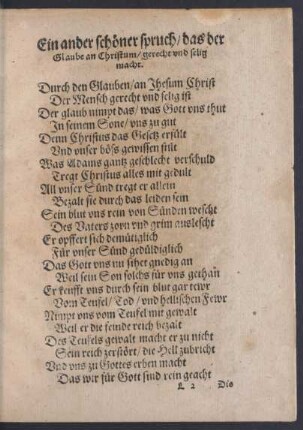 Ein ander schöner spruch / das der
Glaube an Christum / gerecht vnd selig
macht.
Durch den Glauben / an Jhesum Christ
Der Mensch gerecht vnd selig ist
Der glaub nimpt das / was Gott vns thut
In seinem Sone / vns zu gut
Denn Christus das Gesetz erfült
Vnd vnser böss gewissen stilt
Was Adams gantz geschlecht verschuld
Tregt Christus alles mit gedult
All vnser Sünd tregt er allein
Bezalt sie durch das leiden sein
Sein blut vns rein von Sünden wescht
Des Vaters zorn vnd grim auslescht
Er opffert sich demütiglich
Für vnser Sünd gedüldiglich
Das Gott vns nu sihet gnedig an
Weil sein Son solchs für vns gethan
Er keufft vns durch sein blut gar tewr
Vom Teufel / Tod / vnd hellischen Fewr
Nimpt vns vom Teufel mit gewalt
Weil er die feinde reich bezalt
Des Teufels gewalt macht er zu nicht
Sein reich zerstört / die Hell zubricht
Vnd vns zu Gottes erben macht
Das wir für Gott sind rein geacht
2 Die